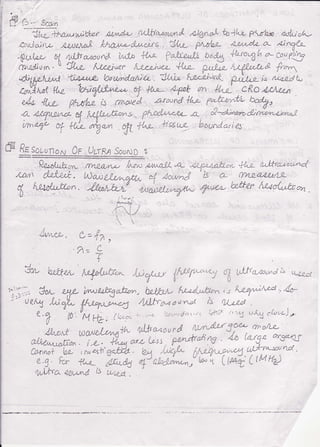 B - Scan
The transmitter sends ultrasound signal to the probe which
contains several transducers. The probe sends a single
pulse of ultrasound into the Patients body through a coupling
medium. The receiver receives the pulse reflected from
different tissue boundaries. This received pulse is used to
control the brightness of the spot on the CRO screen
as the probe is moved around the patients body,
a sequence of reflections, produces a 2-dimensional
image of the organ off the tissue boundaries
RESOLUTION OF ULTRA SOUND :
Resolution means how small a seperation the ultrasound
can detect. Wavelength of sound is a measure
of resolution. Shorter wavelength gives better resolution.
Since, C = fλ,
λ = C/f
For better resolution higher frequency of ultrasound is used
For eye investigation, better resolution is required, so
very high frequency ultrasound is used.
e.g MHz,
Short wavelength ultrasound undergoes more
attenuation. i.e. they are less penetrating. So large organs
cannot be investigated by high frequency ultrasound.
e.g. For the study of abdomen, low (1MHz)
ultra sound is used.